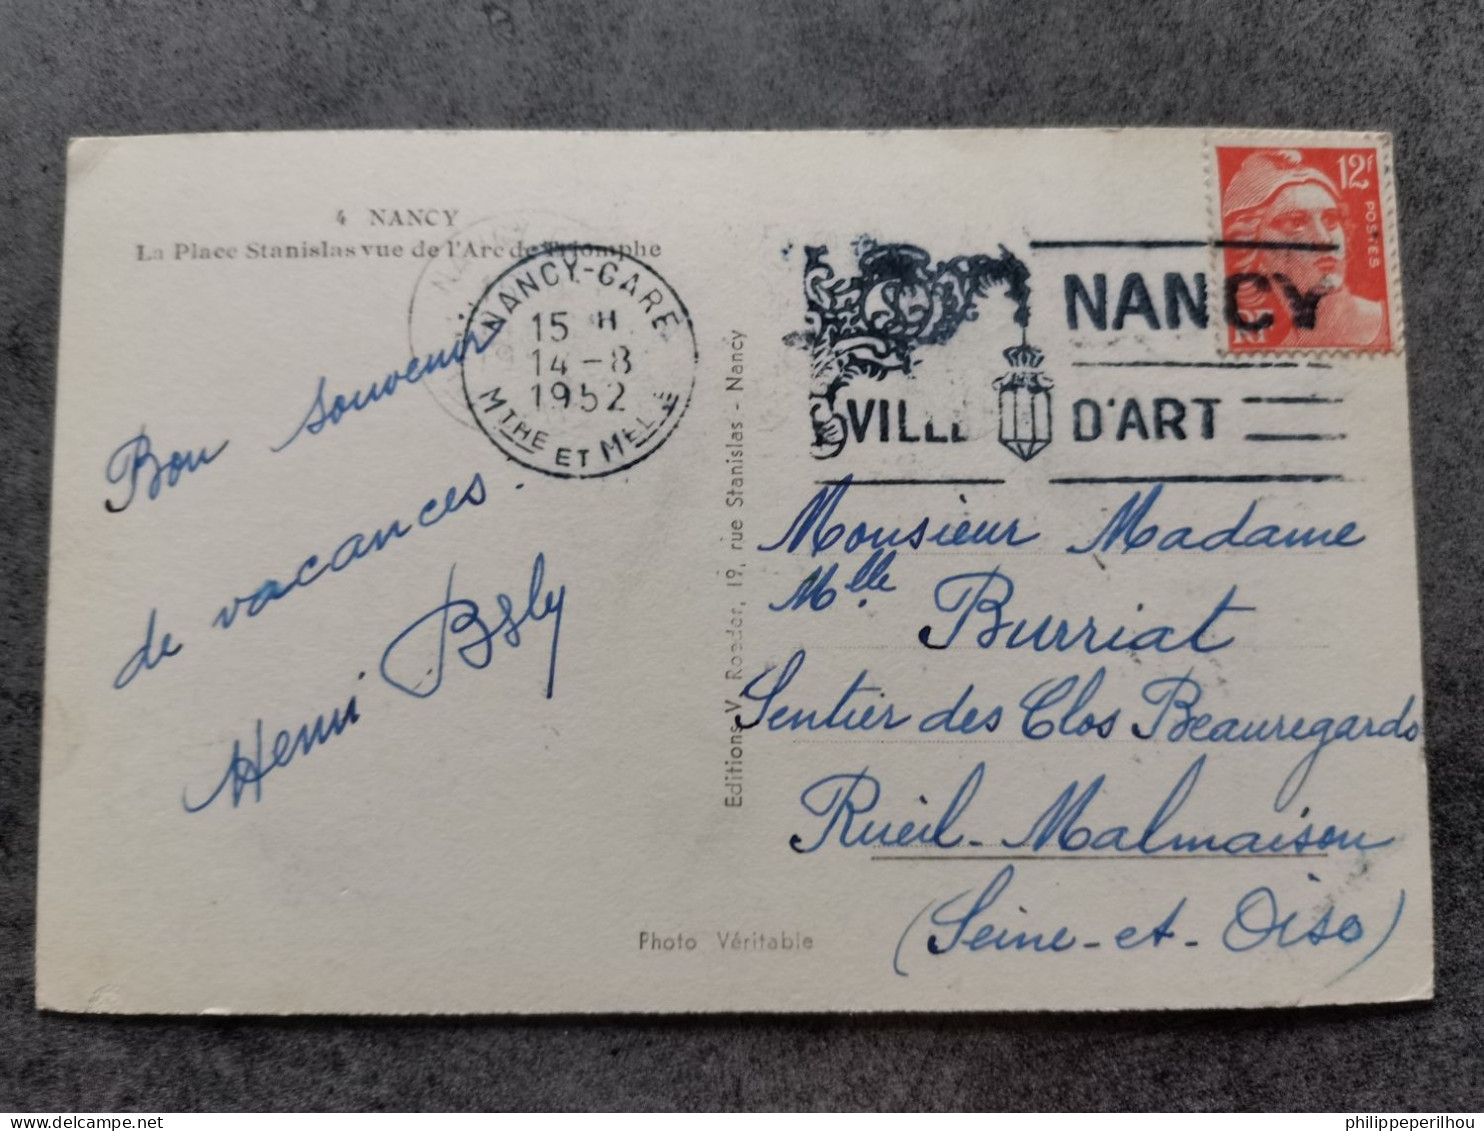 4 NANCY
La Place Stanislas vue de l'Arc de Triomphe
NANCY-GARE
15 H
14-8
1952
MTHE ET MELLE
NANCY
VILLE D'ART
12F
POSTES
RF
Bon souvenir
de vacances.
Henri
Editions V. Roeder, 19, rue Stanislas - Nancy
Monsieur Madame
Mlle Burriat
Sentier des Clos Beauregards
Rueil-Malmaison
(Seine-et-Oise)
Photo Véritable
philippeperilhou